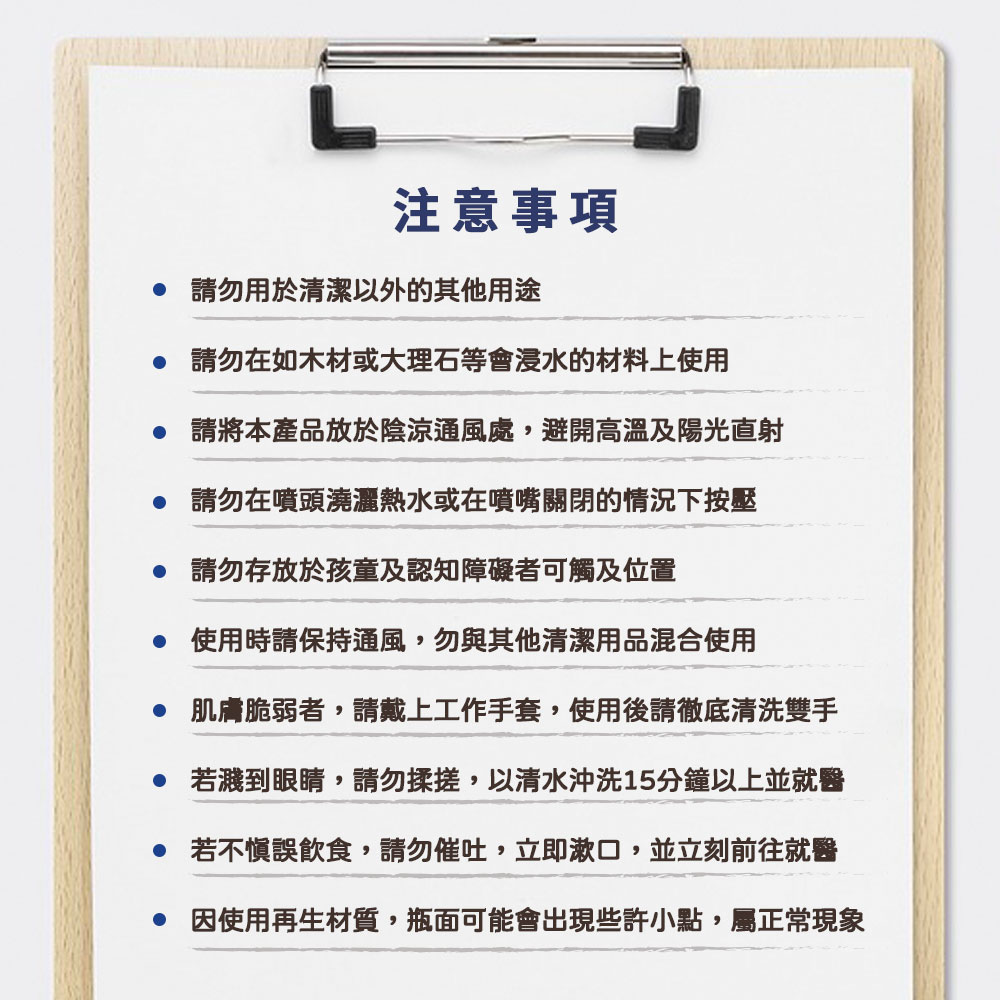 注意事項
請勿用於清潔以外的其他用途
請勿在如木材或大理石等會浸水的材料上使用
請將本產品放於陰涼通風處，避開高溫及陽光直射
請勿在噴頭澆灑熱水或在噴嘴關閉的情況下按壓
請勿存放於孩童及認知障礙者可觸及位置
使用時請保持通風，勿與其他清潔用品混合使用
肌膚脆弱者，請戴上工作手套，使用後請徹底清洗雙手
若濺到眼睛，請勿揉搓，以清水沖洗15分鐘以上並就醫
若不慎誤飲食，請勿催吐，立即漱口，並立刻前往就醫
因使用再生材質，瓶面可能會出現些許小點，屬正常現象